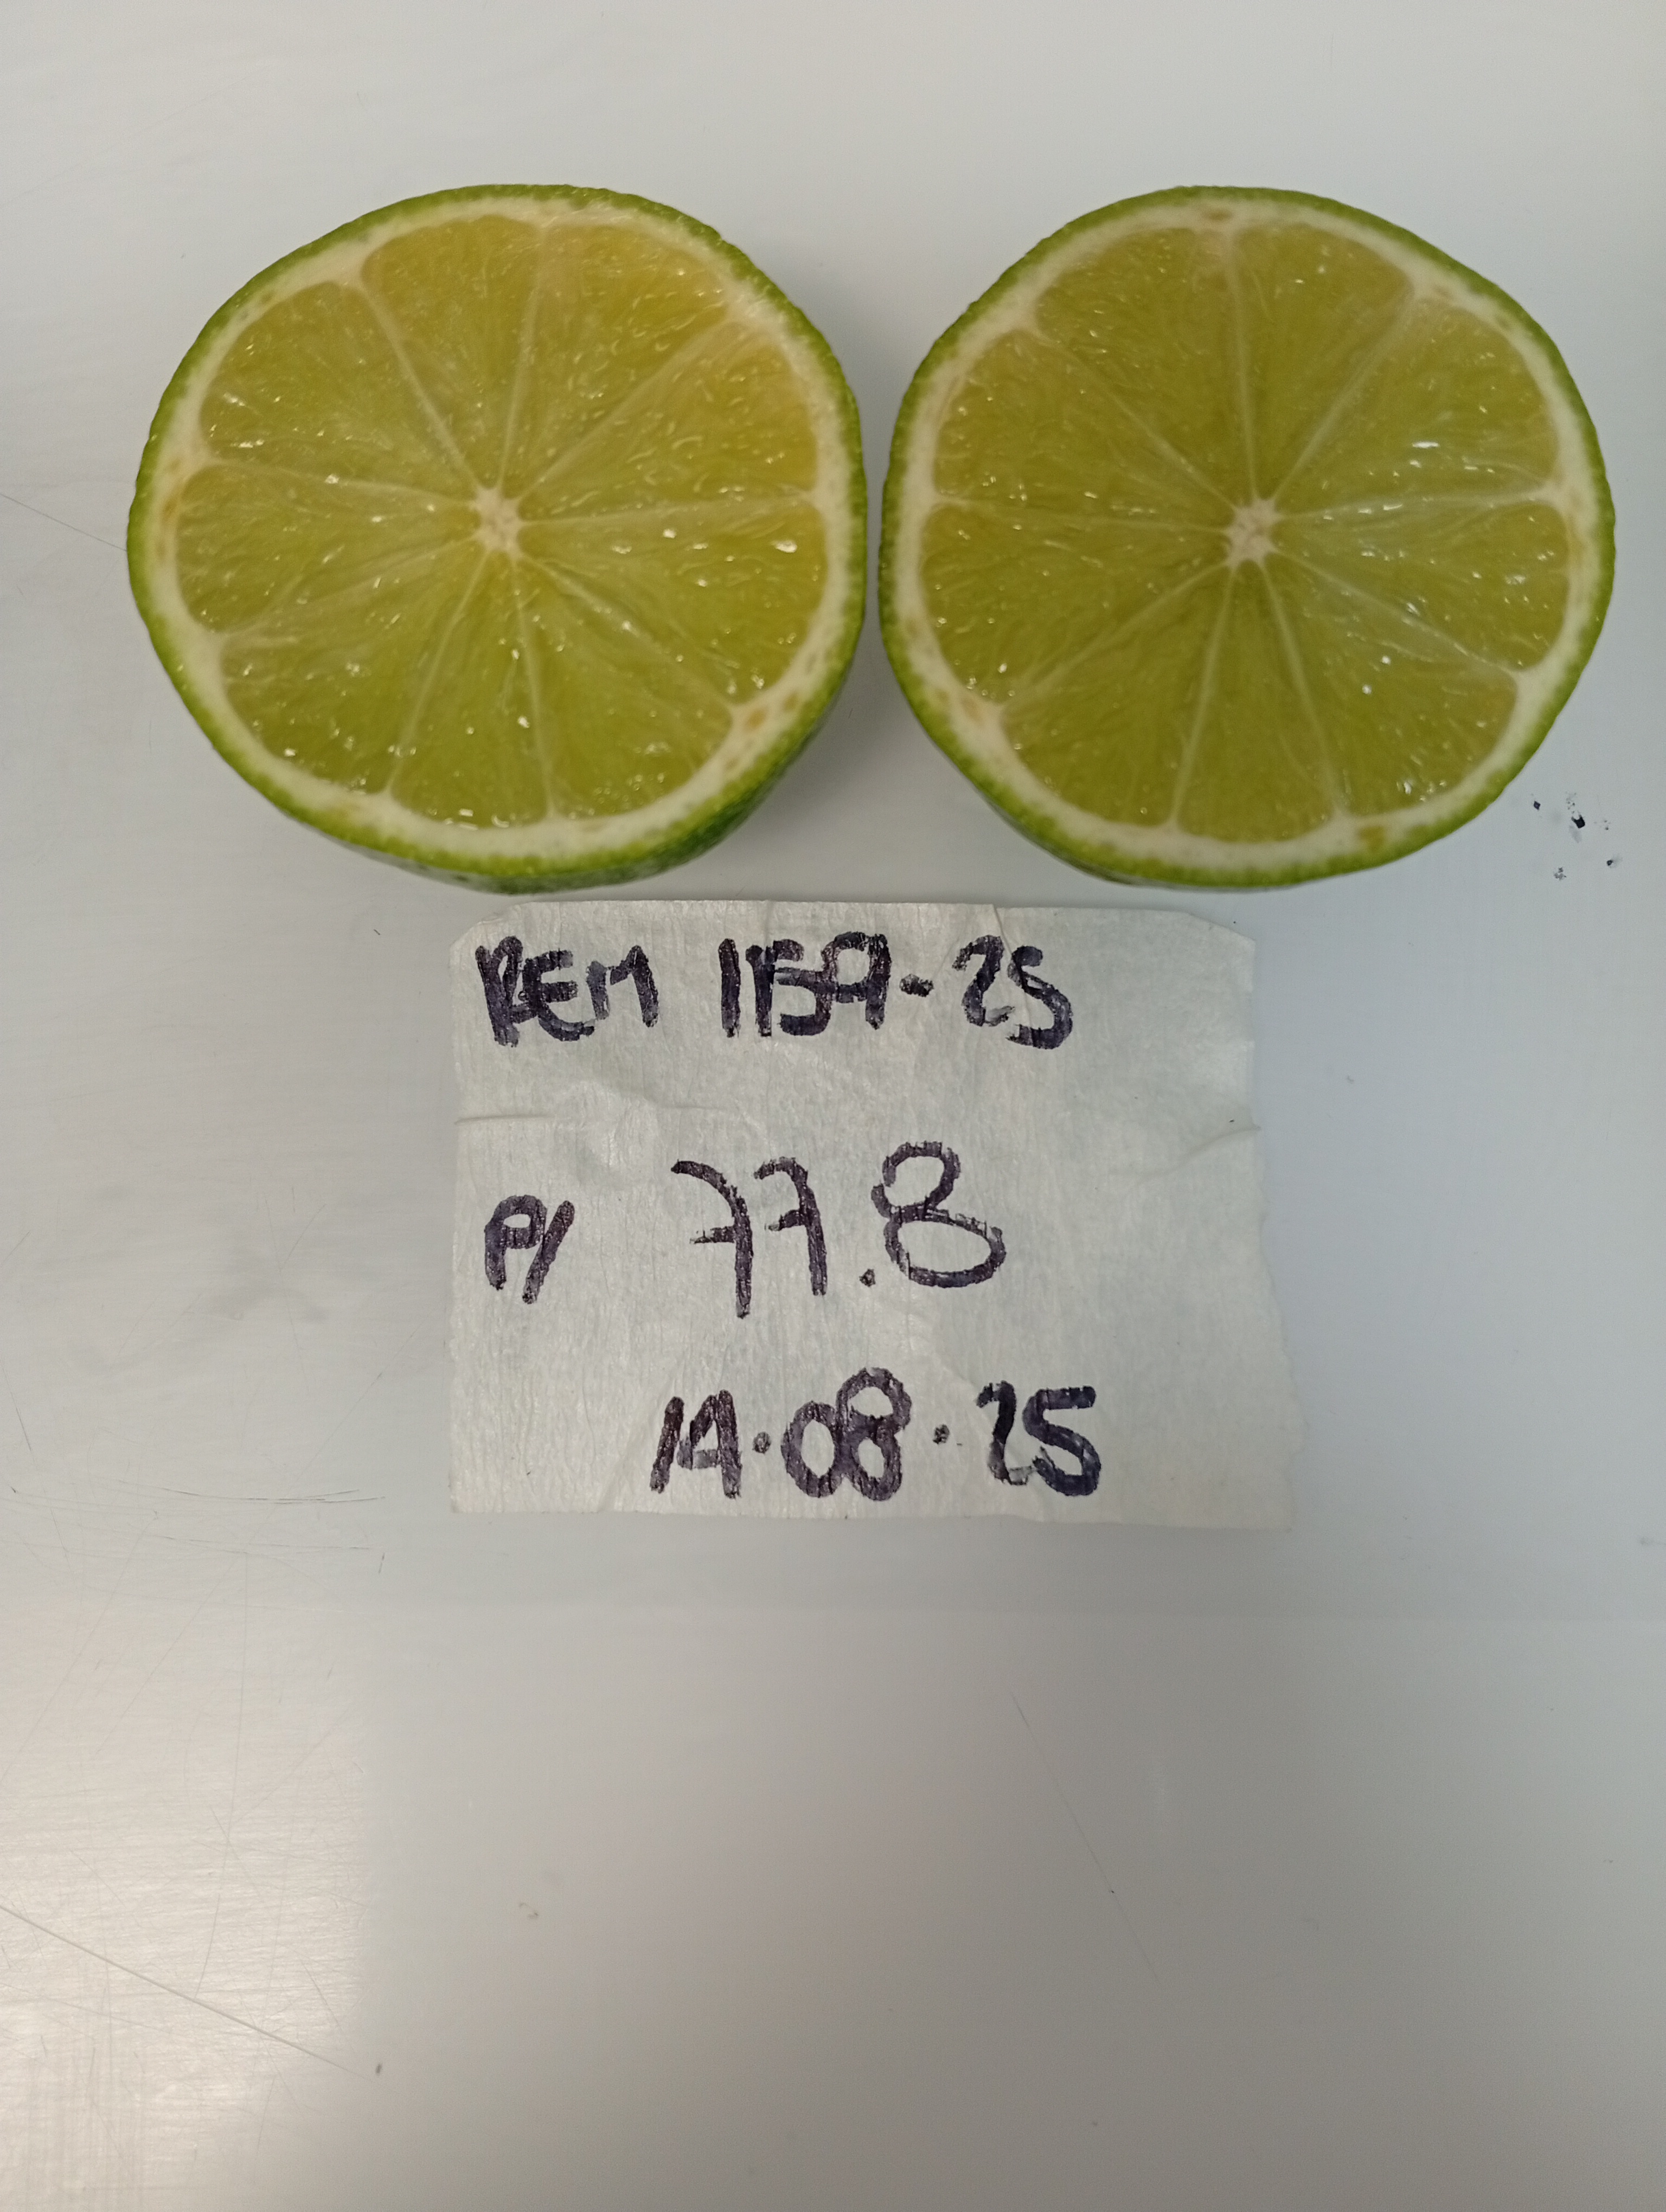 REM 1159-25
P/ 77.8
14.08.25